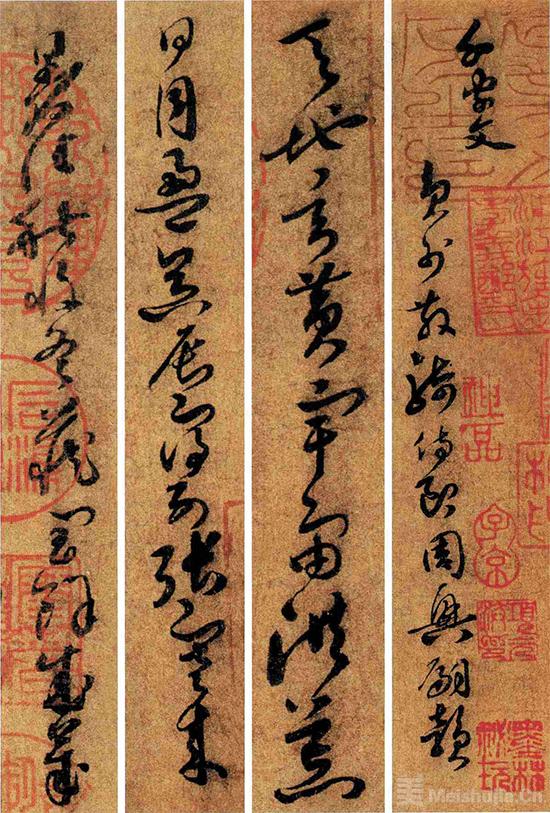 千字文
員外散騎侍郎周興嗣韻
天地玄黃宇宙洪荒
日月盈昃辰宿列張寒來
暑往秋收冬藏閏餘成歲
神品
子京
墨林秘玩
美 Meishujia.Cn